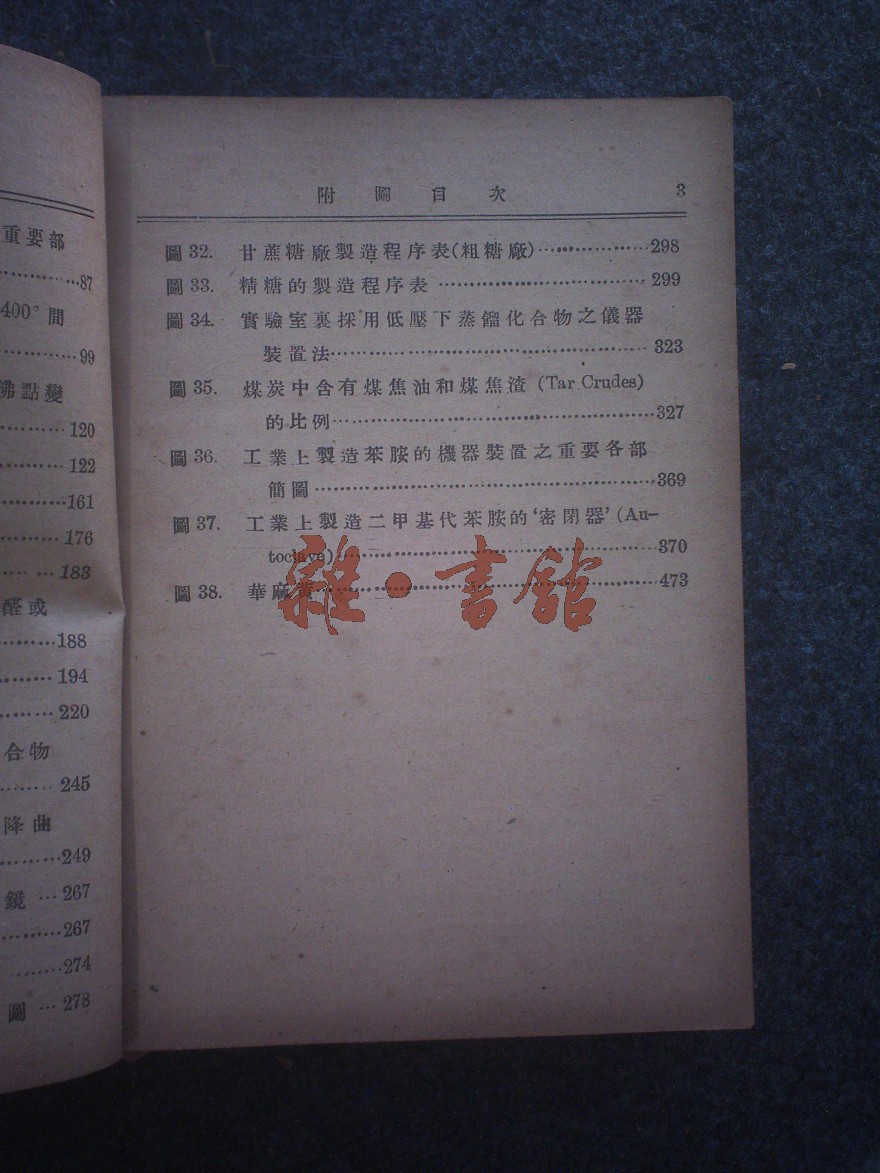 重要部
87
400°間
99
沸點變
120
122
161
176
183
醛或
188
194
220
合物
245
降曲
249
鏡…267
267
274
圖…278
附圖目次 3
圖32. 甘蔗糖廠製造程序表(粗糖廠)……298
圖33. 精糖的製造程序表……299
圖34. 實驗室裏採用低壓下蒸餾化合物之儀器
裝置法……323
圖35. 煤炭中含有煤焦油和煤焦渣 (Tar Crudes)
的比例……327
圖36. 工業上製造苯胺的機器裝置之重要各部
簡圖……369
圖37. 工業上製造二甲基代苯胺的‘密閉器’(Au-
toclave)……370
圖38. 華麻黃……473
雜·書館